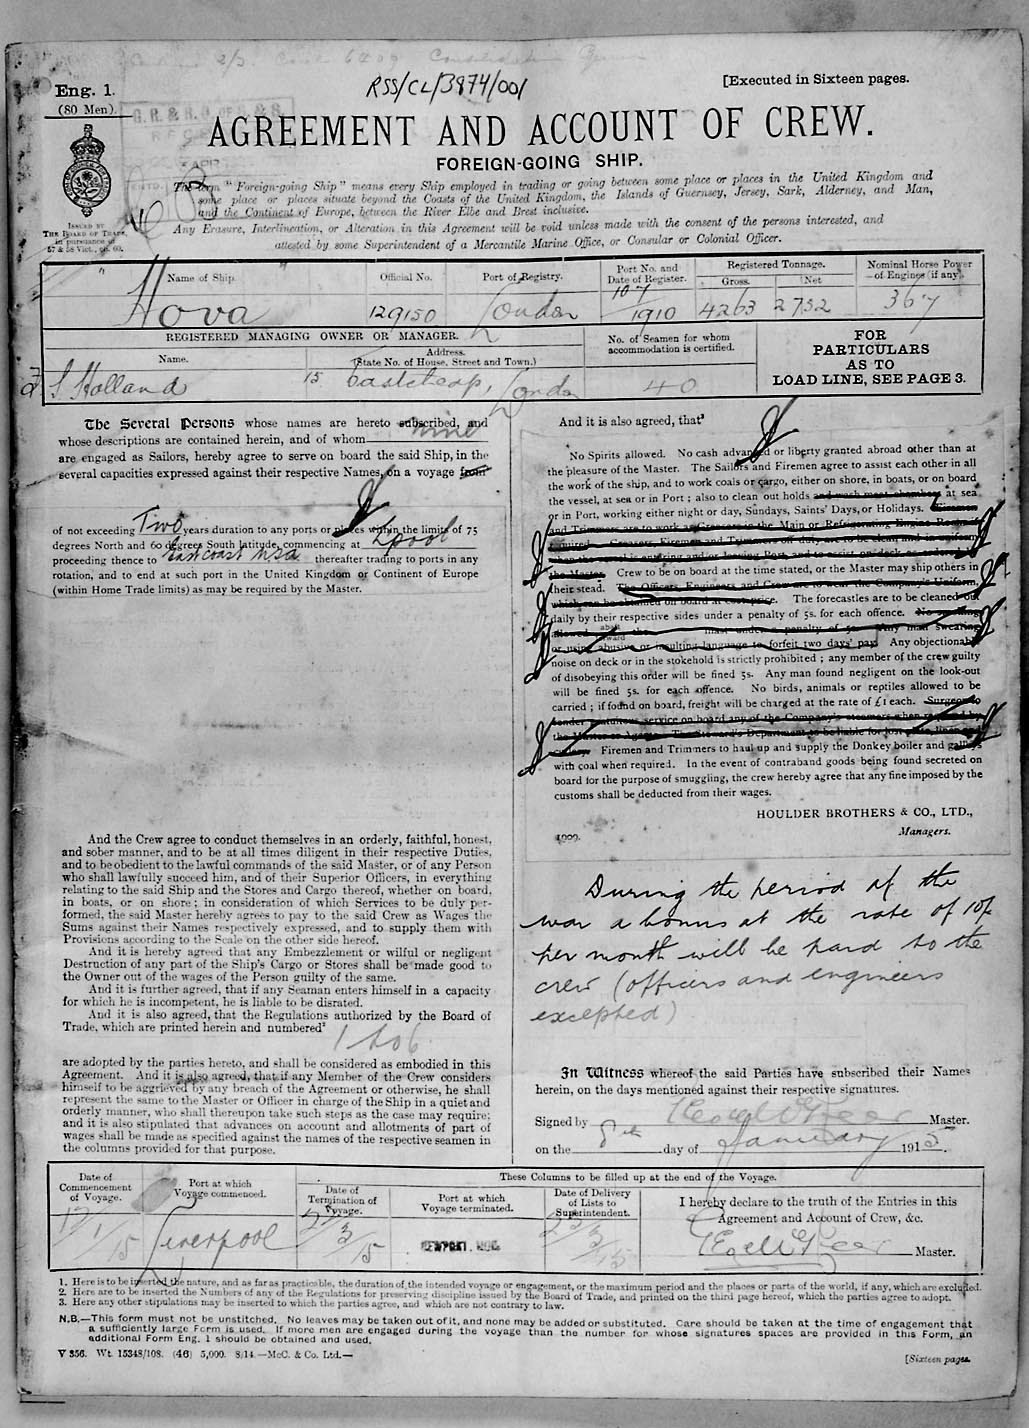 RSS/CL/3874/001
[Executed in Sixteen pages.
Eng. 1.
(80 Men).
AGREEMENT AND ACCOUNT OF CREW.
FOREIGN-GOING SHIP.
The term "Foreign-going Ship" means every Ship employed in trading or going between some place or places in the United Kingdom and
some place or places situate beyond the Coasts of the United Kingdom, the Islands of Guernsey, Jersey, Sark, Alderney, and Man,
and the Continent of Europe, between the River Elbe and Brest inclusive.
Any Erasure, Interlineation, or Alteration in this Agreement will be void unless made with the consent of the persons interested, and
attested by some Superintendent of a Mercantile Marine Office, or Consular or Colonial Officer.
ISSUED BY
THE BOARD OF TRADE,
in pursuance of
57 & 58 Vict., ch. 60.
Name of Ship.
Official No.
Port of Registry.
Port No. and
Date of Register.
Registered Tonnage.
Gross.
Net
Nominal Horse Power
of Engines (if any).
Hova
129150
London
107
1910
4263
2752
367
REGISTERED MANAGING OWNER OR MANAGER.
Name.
Address.
(State No. of House, Street and Town.)
No. of Seamen for whom
accommodation is certified.
FOR
PARTICULARS
AS TO
LOAD LINE, SEE PAGE 3.
S Holland
15 Eastcheap, London
40
The Several Persons whose names are hereto subscribed, and
whose descriptions are contained herein, and of whom nine
are engaged as Sailors, hereby agree to serve on board the said Ship, in the
several capacities expressed against their respective Names, on a voyage from
of not exceeding Two years duration to any ports or places within the limits of 75
degrees North and 60 degrees South latitude, commencing at Lpool
proceeding thence to East coast USA thereafter trading to ports in any
rotation, and to end at such port in the United Kingdom or Continent of Europe
(within Home Trade limits) as may be required by the Master.
And the Crew agree to conduct themselves in an orderly, faithful, honest,
and sober manner, and to be at all times diligent in their respective Duties,
and to be obedient to the lawful commands of the said Master, or of any Person
who shall lawfully succeed him, and of their Superior Officers, in everything
relating to the said Ship and the Stores and Cargo thereof, whether on board,
in boats, or on shore; in consideration of which Services to be duly per-
formed, the said Master hereby agrees to pay to the said Crew as Wages the
Sums against their Names respectively expressed, and to supply them with
Provisions according to the Scale on the other side hereof.
And it is hereby agreed that any Embezzlement or wilful or negligent
Destruction of any part of the Ship's Cargo or Stores shall be made good to
the Owner out of the wages of the Person guilty of the same.
And it is further agreed, that if any Seaman enters himself in a capacity
for which he is incompetent, he is liable to be disrated.
And it is also agreed, that the Regulations authorized by the Board of
Trade, which are printed herein and numbered²
1 to 6
are adopted by the parties hereto, and shall be considered as embodied in this
Agreement. And it is also agreed, that if any Member of the Crew considers
himself to be aggrieved by any breach of the Agreement or otherwise, he shall
represent the same to the Master or Officer in charge of the Ship in a quiet and
orderly manner, who shall thereupon take such steps as the case may require;
and it is also stipulated that advances on account and allotments of part of
wages shall be made as specified against the names of the respective seamen in
the columns provided for that purpose.
And it is also agreed, that³
No Spirits allowed. No cash advanced or liberty granted abroad other than at
the pleasure of the Master. The Sailors and Firemen agree to assist each other in all
the work of the ship, and to work coals or cargo, either on shore, in boats, or on board
the vessel, at sea or in Port; also to clean out holds and wash meat chambers at sea
or in Port, working either night or day, Sundays, Saints' Days, or Holidays. Firemen
and Trimmers to work as Greasers in the Main or Refrigerating Engine Room if
required. Greasers, Firemen and Trimmers off duty are to be clean and in uniform
when the vessel is entering and/or leaving Port, and to assist on deck as ordered by
the Master. Crew to be on board at the time stated, or the Master may ship others in
their stead. The Officers, Engineers and Crew are to wear the Company's Uniform,
which can be obtained on board at cost price. The forecastles are to be cleaned out
daily by their respective sides under a penalty of 5s. for each offence. No smoking
allowed abaft the mast under a penalty of 5s. Any man swearing
or using abusive or insulting language to forfeit two days' pay. Any objectionable
noise on deck or in the stokehold is strictly prohibited; any member of the crew guilty
of disobeying this order will be fined 5s. Any man found negligent on the look-out
will be fined 5s. for each offence. No birds, animals or reptiles allowed to be
carried; if found on board, freight will be charged at the rate of £1 each. Surgeon to
tender gratuitous service on board any of the Company's steamers when required by
the Master or Agents. The Steward's Department to be liable for lost plate, linen and
cutlery. Firemen and Trimmers to haul up and supply the Donkey boiler and galleys
with coal when required. In the event of contraband goods being found secreted on
board for the purpose of smuggling, the crew hereby agree that any fine imposed by the
customs shall be deducted from their wages.
HOULDER BROTHERS & CO., LTD.,
Managers.
1909.
During the period of the
war a bonus at the rate of 10/-
per month will be paid to the
crew (officers and engineers
excepted)
In Witness whereof the said Parties have subscribed their Names
herein, on the days mentioned against their respective signatures.
Signed by Master.
on the 8th day of January 1915.
Date of
Commencement
of Voyage.
Port at which
Voyage commenced.
These Columns to be filled up at the end of the Voyage.
Date of
Termination of
Voyage.
Port at which
Voyage terminated.
Date of Delivery
of Lists to
Superintendent.
I hereby declare to the truth of the Entries in this
Agreement and Account of Crew, &c.
Master.
Liverpool
NEWPORT. MON.
1. Here is to be inserted the nature, and as far as practicable, the duration of the intended voyage or engagement, or the maximum period and the places or parts of the world, if any, which are excluded.
2. Here are to be inserted the Numbers of any of the Regulations for preserving discipline issued by the Board of Trade, and printed on the third page hereof, which the parties agree to adopt.
3. Here any other stipulations may be inserted to which the parties agree, and which are not contrary to law.
N.B.—This form must not be unstitched. No leaves may be taken out of it, and none may be added or substituted. Care should be taken at the time of engagement that
a sufficiently large Form is used. If more men are engaged during the voyage than the number for whose signatures spaces are provided in this Form, an
additional Form Eng. 1 should be obtained and used.
V 356. Wt. 15348/108. (46) 5,000. 8/14.—McC. & Co. Ltd.—
[Sixteen pages.